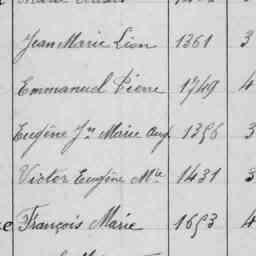 Jean Marie Léon 1361 3
Emmanuel Pierre 1749 4
Eugène Jn Marie Aug. 1356 3
Victor Eugène Mie 1431 3
François Marie 1653 4